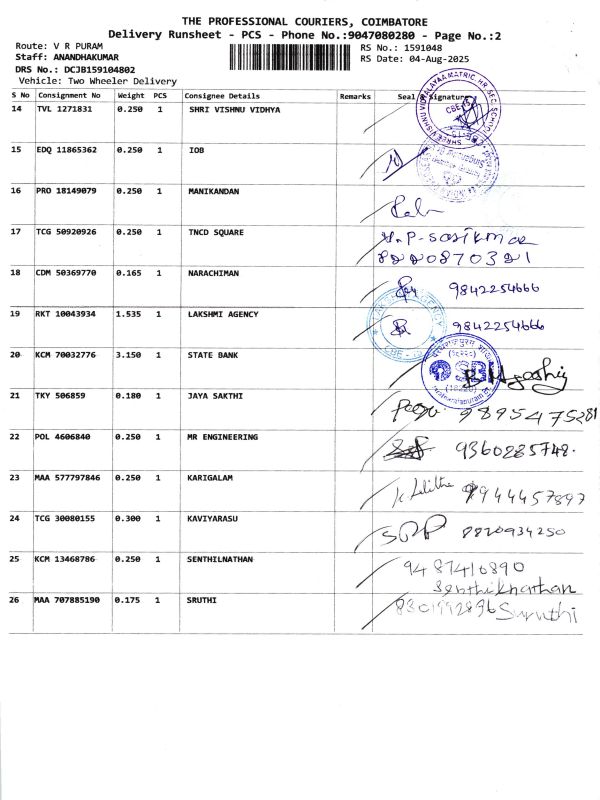 THE PROFESSIONAL COURIERS, COIMBATORE
Delivery Runsheet - PCS - Phone No.:9047080280 - Page No.:2
Route: V R PURAM
RS No.: 1591048
Staff: ANANDHAKUMAR
RS Date: 04-Aug-2025
DRS No.: DCJB159104802
Vehicle: Two Wheeler Delivery
S No Consignment No Weight PCS Consignee Details Remarks Seal & Signature
14 TVL 1271831 0.250 1 SHRI VISHNU VIDHYA
15 EDQ 11865362 0.250 1 IOB
16 PRO 18149079 0.250 1 MANIKANDAN
17 TCG 50920926 0.250 1 TNCD SQUARE
8220870321
18 CDM 50369770 0.165 1 NARACHIMAN 9842254666
19 RKT 10043934 1.535 1 LAKSHMI AGENCY 9842254666
20 KCM 70032776 3.150 1 STATE BANK
21 TKY 506859 0.180 1 JAYA SAKTHI 9895475281
22 POL 4606840 0.250 1 MR ENGINEERING 9360285748.
23 MAA 577797846 0.250 1 KARIGALAM K Lalitha 9944457897
24 TCG 30080155 0.300 1 KAVIYARASU 8820934250
25 KCM 13468786 0.250 1 SENTHILNATHAN 9487416890
Senthilnathan
26 MAA 707885190 0.175 1 SRUTHI 8301992896 Sruthi